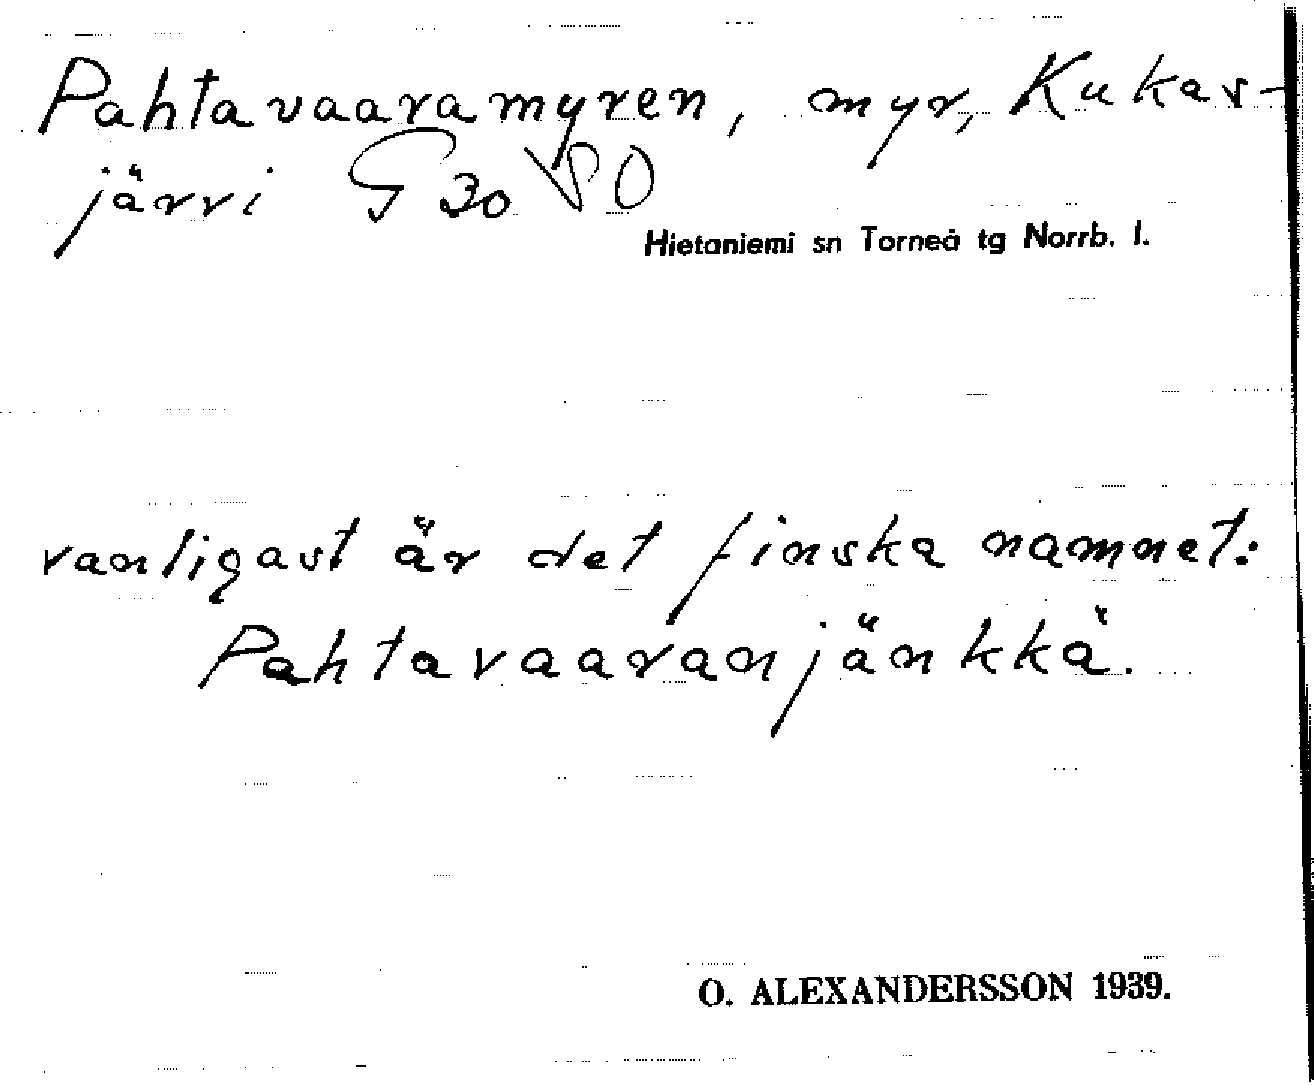 Pahtavaaramyren, myr, Kukas-
järvi G 30 SO
Hietaniemi sn Torneå tg Norrb. l.
vanligast är det finska namnet:
Pahtavaaranjänkkä.
O. ALEXANDERSSON 1939.